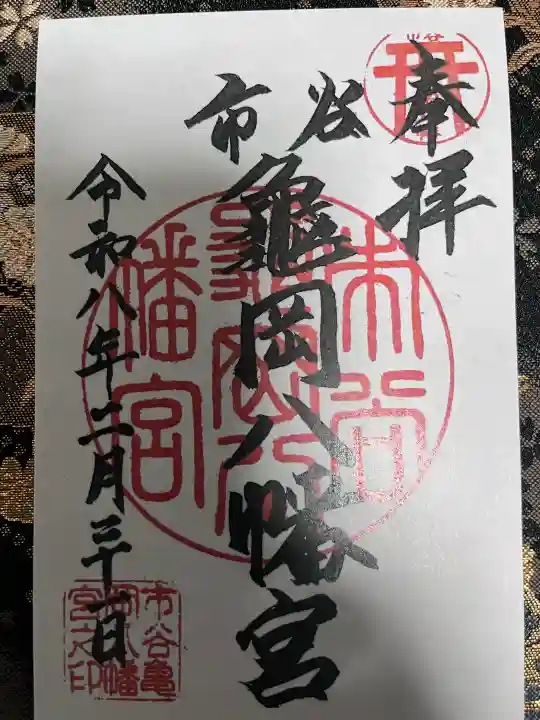 奉拝
市谷
龜岡八幡宮
令和八年三月三十一日
市谷
市谷
龜岡八
幡宮
市谷亀
岡八幡
宮之印